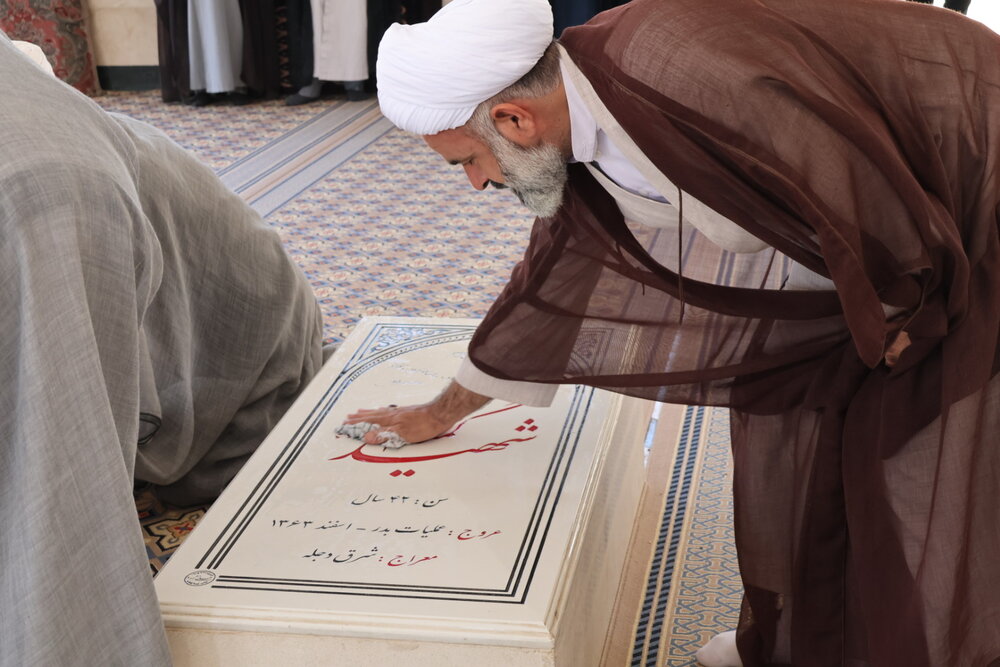 شهید
سن : ۴۲ سال
عروج : عملیات بدر - اسفند ۱۳۶۳
معراج : شرق دجله